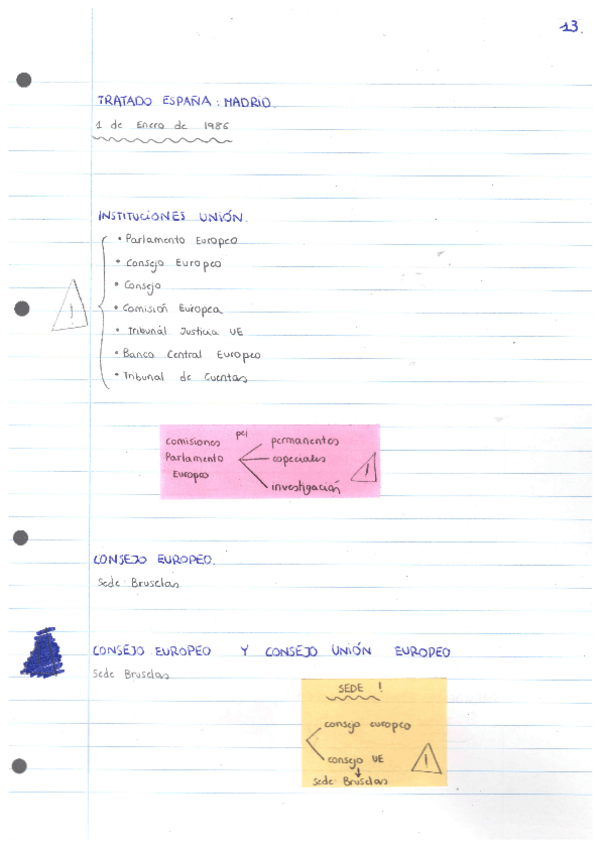 13.
TRATADO ESPAÑA: MADRID.
1 de Enero de 1986
INSTITUCIONES UNIÓN.
• Parlamento Europeo
• Consejo Europeo
• Consejo
• Comisión Europea
!
• Tribunal Justicia UE
• Banco Central Europeo
• Tribunal de Cuentas
comisiones pei permanentes
Parlamento especiales
Europeo !
investigación
CONSEJO EUROPEO.
Sede Bruselas
CONSEJO EUROPEO Y CONSEJO UNIÓN EUROPEO
Sede Bruselas
SEDE !
consejo europeo
consejo UE !
sede Bruselas